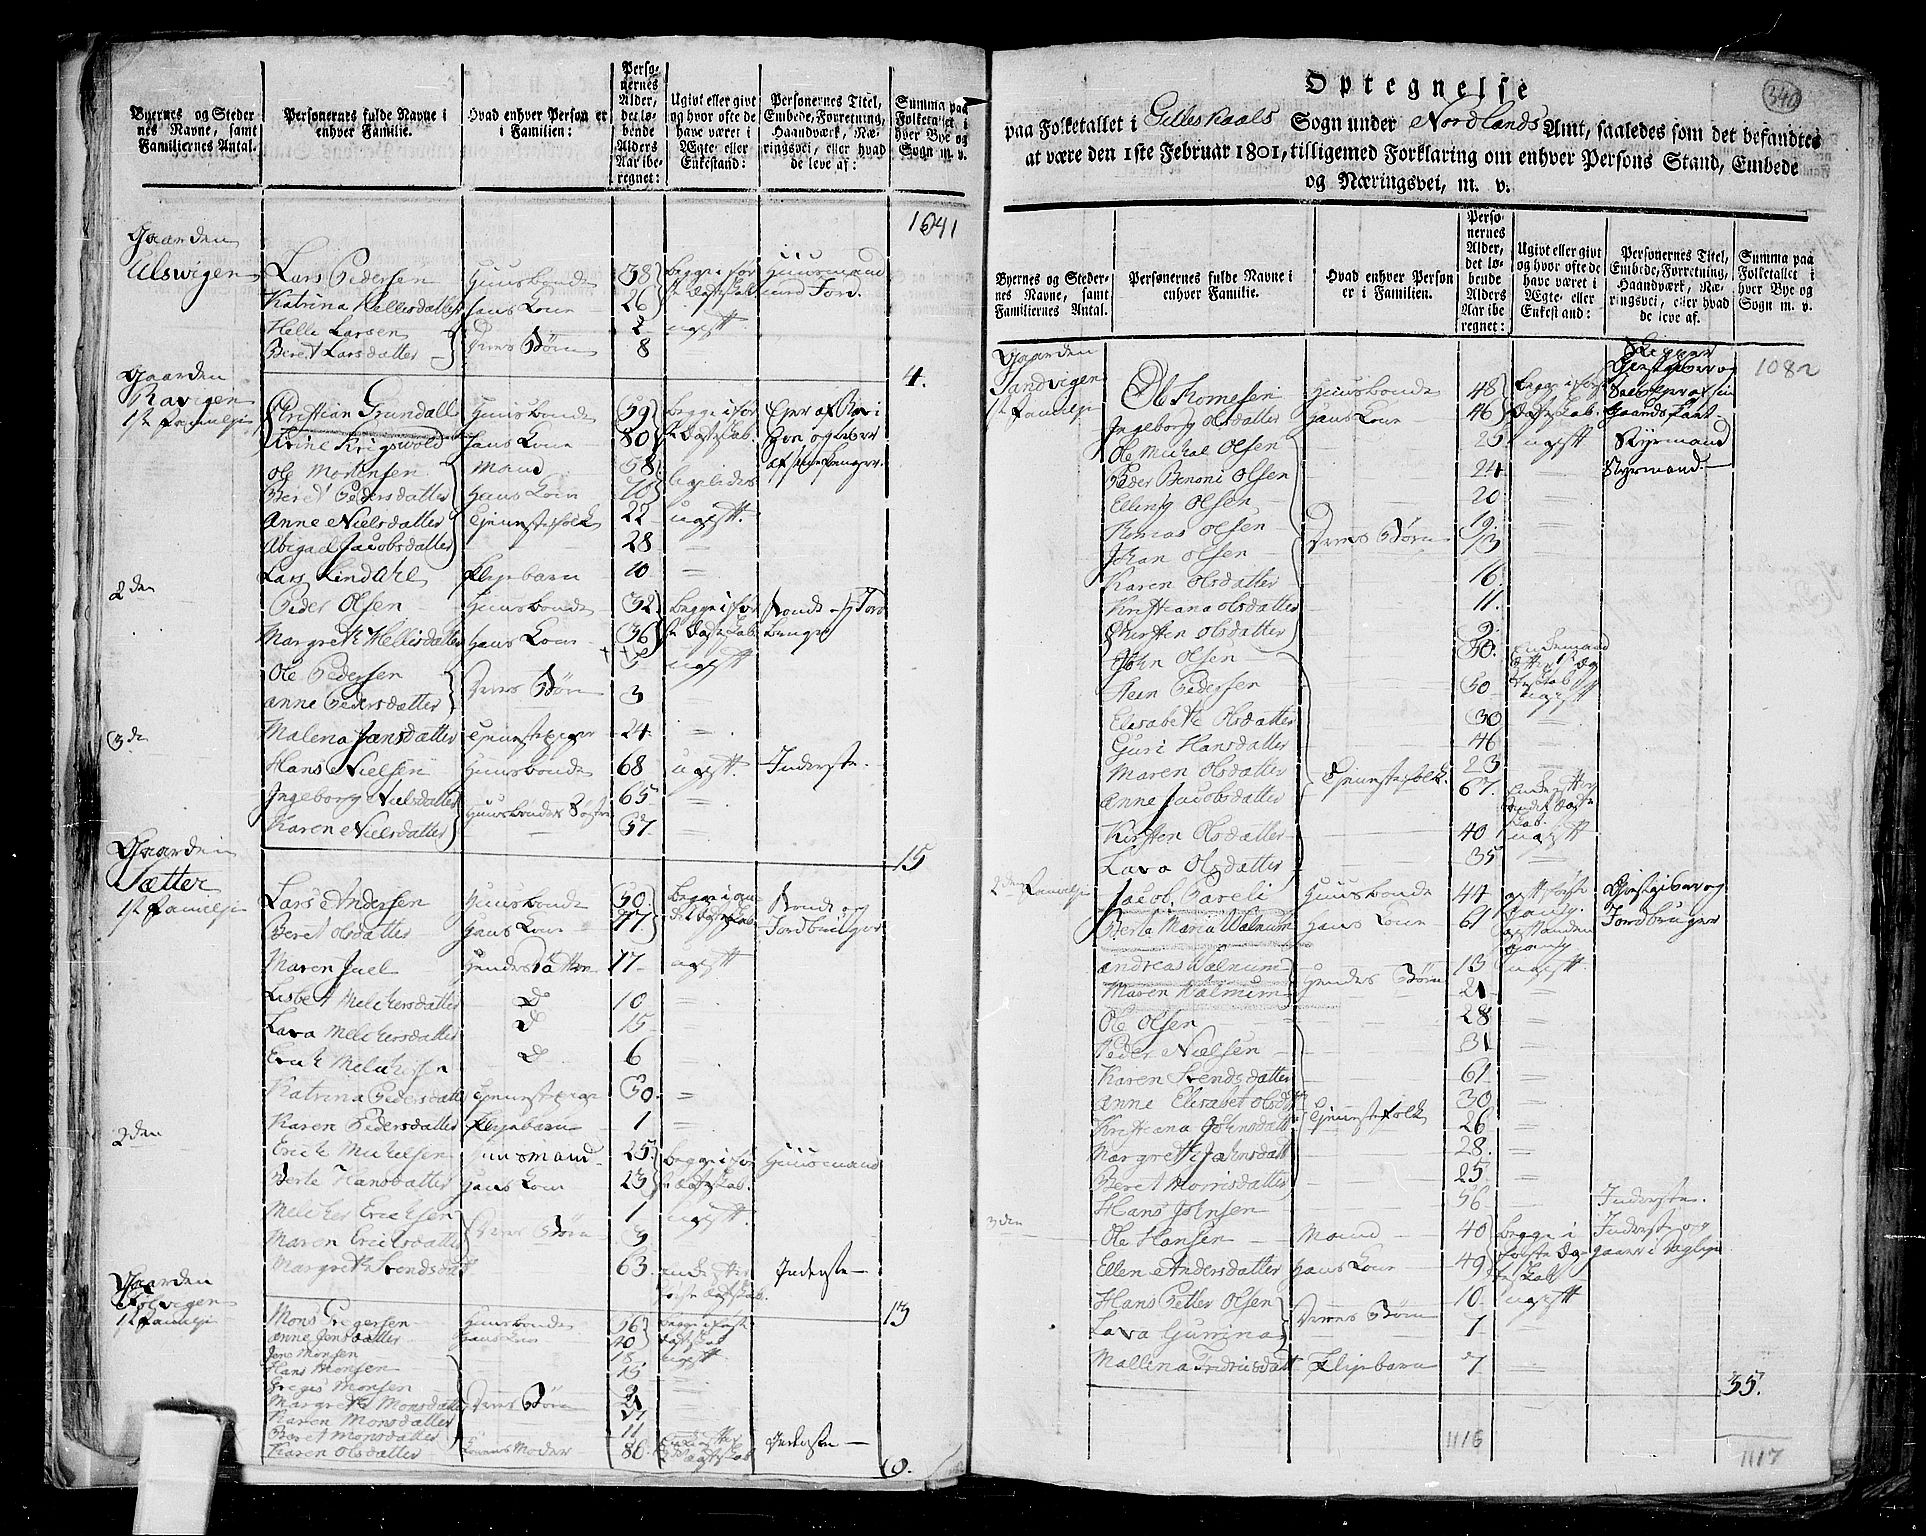 Byernes og Steder
nes Navne, samt
Familiernes Antal.
Personernes fulde Navne i
enhver Familie.
Hvad enhver Person er
i Familien:
Perso-
nernes
Alder,
det lø-
bende
Alders
Aar ibe
regnet:
Ugivt eller givt
og hvor ofte de
have været i
Ægte- eller
Enkestand:
Personernes Titel,
Embede, Forretning,
Haandværk, Næ-
ringsvei, eller hvad
de leve af:
Summa paa
Folketallet i
hver Bye og
Sogn m. v.
1041
Gaarden
Ulswigen Lars Pedersen Huusbonde 38 begge i før Huusmand
Katrina Hellesdatter hans Kone 26 ste Ægteskab med Jord.
Helle Larsen 2 ugift.
Beret Larsdatter Deres Børn 8
4.
Gaarden
Kristian Grundall Huusbonde 59 begge i før
1ste Familje
hans Kone 80 ste Ægteskab.
Ole Mortensen Mand 58
Beret Pedersdatter hans Kone 70
Anne Nielsdatter Tjenestefolk 22 ugift.
Abigael Jacobsdatter 28
Lars Lindahl Flejebarn 10
2den Peder Olsen Huusbonde 32 begge i før
Margreth Hellesdatter hans Kone 36 ste Ægteskab
Ole Pedersen 5 ugift
Anne Pedersdatter Deres Børn 3
Malena Jansdatter Tjenestepige 24
3die Hans Nielsen Huusbonde 68 ugift. Inderste.
Ingeborg Nielsdatter Huusbondes Søstre 65
Karen Nielsdatter 57
15
Gaarden
Sætter Lars Andersen Huusbonde 50. begge i an Bonde og
1ste Familje Beret Olsdatter hans Kone 47 det Ægteskab. Jordbruger
Maren Juel hendes Datter 17 ugift
Lisbet Melchersdatter D 10
Lava Melchersdatter D 15
Erich Melchersen D 6
Katrina Pedersdatter Tjenestepige 30.
Karen Pedersdatter Flejebarn 1
2den Erich Michelsen Huusmand 25 begge i før Huusmand
Berte Hansdatter hans Kone 23 ste Ægteskab.
Melcher Erichsen 1 ugift.
Maren Erichsdatter Deres Børn 3
Margreth Svendsdat 63 Enke efter Inderste
første Ægteskab.
13
Gaarden
1ste Familje Mons Gregersen Huusbonde 56 begge i første
Anne Jensdatter hans Kone 40 Ægteskab
Jens Monsen 18 ugift
Hans Monsen 15
Greges Monsen
Margreth Monsdatter Deres Børn
Karen Monsdatter
Beret Monsdatter 11
Karen Olsdatter Konens Moder 80. Enke efter Inderste
Ægteskab
9.
340
Optegnelse
paa Folketallet i Gilleskaals Sogn under Nordlands Amt, saaledes som det befandtes
at være den 1ste Februar 1801, tilligemed Forklaring om enhver Persons Stand, Embede
og Næringsvei, m. v.
Byernes og Steder-
nes Navne, samt
Familiernes Antal.
Personernes fulde Navne i
enhver Familie.
Hvad enhver Person
er i Familien.
Perso-
nernes
Alder,
det lø-
bende
Alders
Aar ibe
regnet:
Ugivt eller givt
og hvor ofte de
have været i
Ægte- eller
Enkestand:
Personernes Titel,
Embede, Forretning,
Haandværk, Næ-
ringsvei, eller hvad
de leve af.
Summa paa
Folketallet i
hver Bye og
Sogn m. v.
1082
Gaarden
Sandvigen Huusbonde 48 begge i første Giestgiver og
1ste Familje Ingeborg Olsdatter hans Kone 46 Ægteskab.
Ole Michal Olsen 25 ugift Styrmand
Peder Benoni Olsen 24 Styrmand.
Elling Olsen 20
Olsen 19
Johan Olsen Deres Børn
Karen Olsdatter 16
Kristiana Olsdatter 11
Kirsten Olsdatter 9
John Olsen Enkemand
efter 1ste Æg
teskab
Pedersen 50 ugift
Elisabeth Olsdatter 30
Guri Hansdatter 46
Maren Olsdatter 23
Anne Jacobsdatter Tjenestefolk. 67 Enke efter
andet Ægte
skab.
Kirsten Olsdatter 40 ugift
Lava Olsdatter 35
2den Familje Jacob Pareli Huusbonde 44 gift første Giestgiver og
gang.
Berte Maria Walnum hans Kone 61 gift anden Jordbruger
gang
Andreas Walnum 13 ugift
Maren Walnum hendes Børn 21
Ole Olsen 28
Peder Nielsen 31
Karen Svendsdatter 61
Anne Elisabet Olsdt 30
Kristiana Johnsdatt Tjenestefolk 26
Margrethe Jahnsdatt 28
Beret Morrisdatter 25
Hans Johnsen 56 Inderste.
3die Ole Hansen Mand 40 begge i Inderste og
Ellen Andersdatter hans Kone 49 første Æg
teskab
Hans Petter Olsen 10 ugift
Lava Gurrina Deres Børn 7
Mallena Fridricsdatt Flejebarn 7
35.
1116
1117